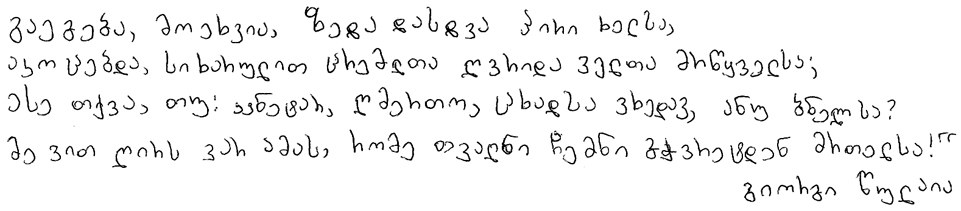 გაეგება, მოეხვია, ზედა დასდვა პირი ხელსა,
აკოცებდა, სიხარულით ცრემლთა ღვრიდა ველთა მრწყველსა;
ესე თქვა, თუ: „ვნეტარ, ღმერთო, ცხადსა ვხედავ, ანუ ბნელსა?
მე ვით ღირს ვარ ამას, რომე თვალნი ჩემნი გჭვრეტდენ მრთელსა!“
გიორგი წულაია